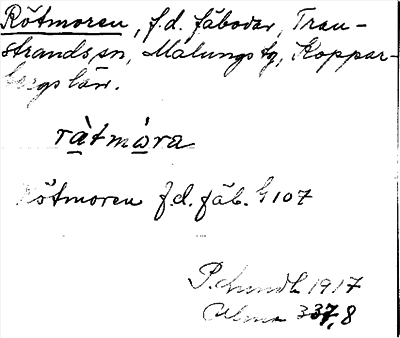 Rötmoren, f.d. fäbodar, Tran-
strands sn, Malungs tg, Koppar-
bergs län.
ràtmòra
Rötmoren f.d. fäb. G 107
P. Lundh 1917
Ulma 337,8